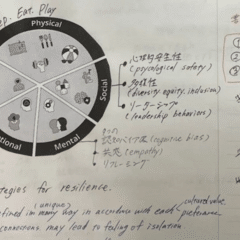 ep. Eat. Play
Physical
Social
Mental
tional
心理的安全性
(psychological safety)
多様性
(diversity, equity, inclusion)
リーダーシップ
(leadership behaviors)
(cognitive bias)
共感 (empathy)
リフレーミング
tegies for resilience.
(unique)
fined in many way in accordance with each
cultural value
preference
connections may lead to feeling of isolation